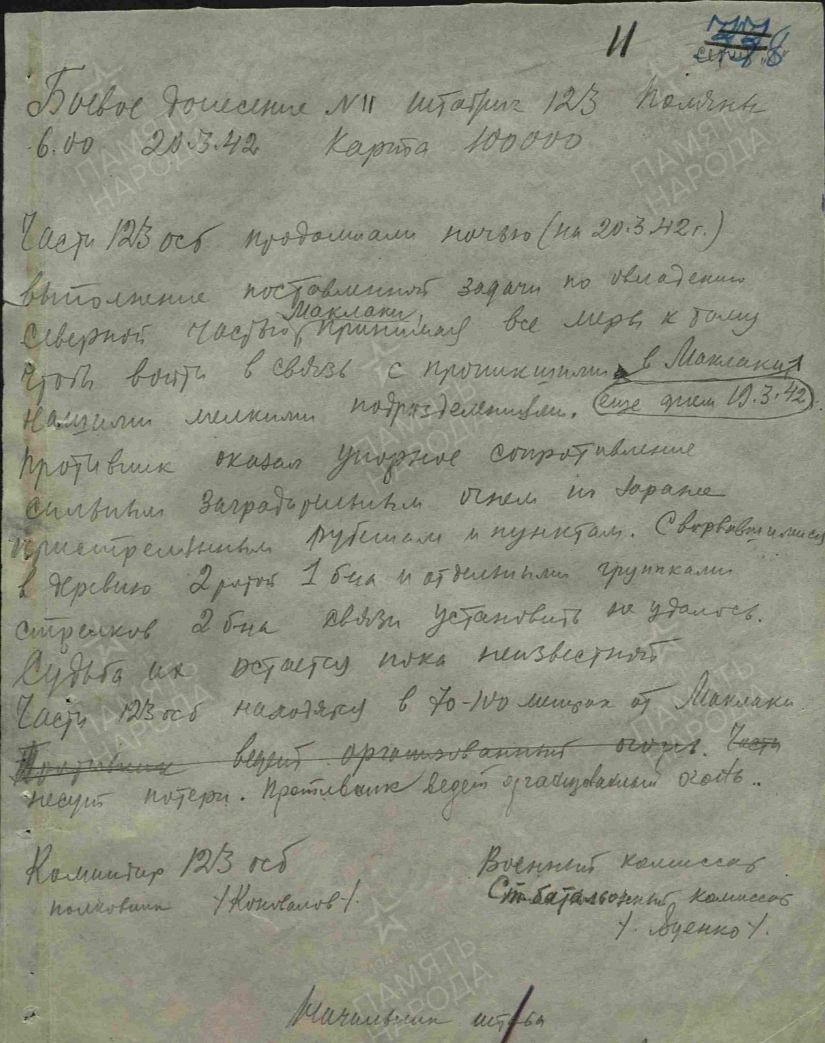 11
Боевое донесение №11 штабриг 123 Поляны
6.00 20.3.42 Карта 100000
Части 123 осб продолжали ночью (на 20.3.42 г.)
выполнение поставленной задачи по овладению
северной частью Маклаки, принимая все меры к тому
чтобы войти в связь с проникшими в Маклаки
нашими мелкими подразделениями. еще днем 19.3.42.
Противник оказал упорное сопротивление
сильным заградительным огнем по заранее
пристрелянным рубежам и пунктам. С ворвавшимися
в деревню 2 ротой 1 б-на и отдельными группами
стрелков 2 б-на связи установить не удалось.
Судьба их остается пока неизвестной
Части 123 осб находятся в 70-100 метрах от Маклаки
Противник ведет организованный огонь. Части
несут потери. Противник ведет организованный огонь.
Командир 123 осб
полковник /Коновалов/.
Военный комиссар
Ст. батальонный комиссар
/. Яценко /.
Начальник штаба
ПАМЯТЬ
НАРОДА
ПАМЯТЬ
НАРОДА
ПАМЯТЬ
НАРОДА
ПАМЯТЬ
НАРОДА
ПАМЯТЬ
НАРОДА
ПАМЯТЬ
НАРОДА